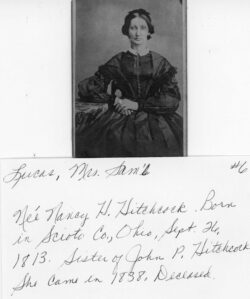 Lucas, Mrs. Sam'l #6
Neé Nancy H. Hitchcock. Born
in Scioto Co., Ohio, Sept. 26,
1813. Sister of John P. Hitchcock
She came in 1838. Deceased.